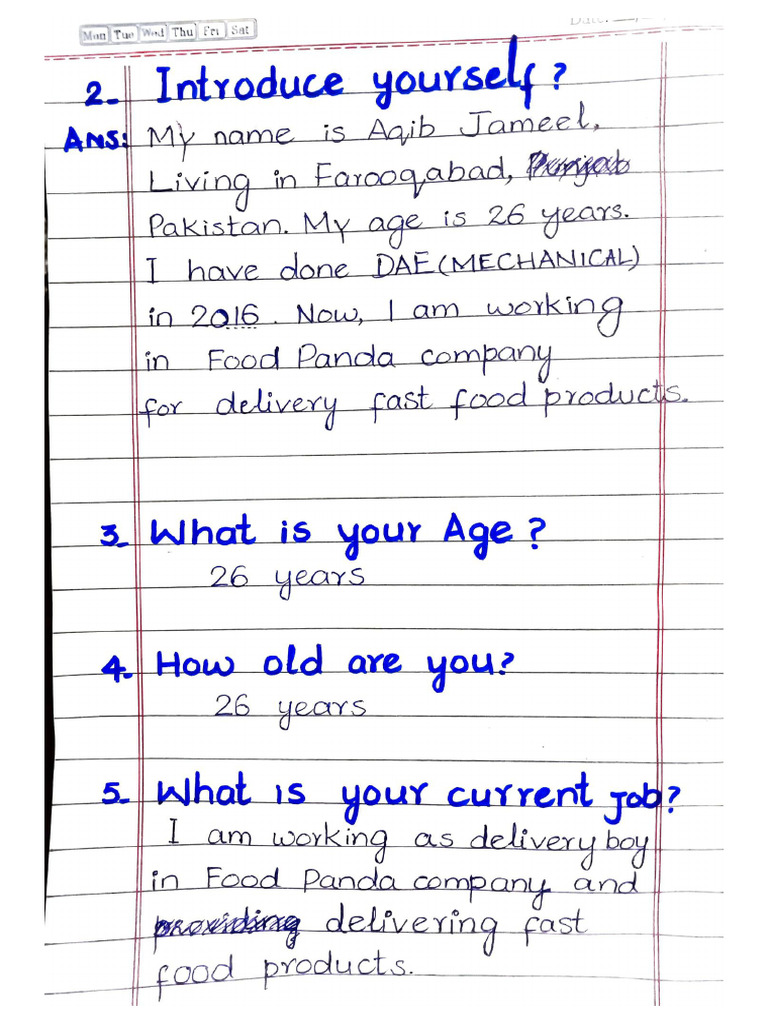 Mon Tue Wed Thu Fri Sat
Date:
2- Introduce yourself?
Ans: My name is Aqib Jameel,
Living in Farooqabad, Punjab
Pakistan. My age is 26 years.
I have done DAE(MECHANICAL)
in 2016. Now, I am working
in Food Panda company
for delivery fast food products.
3- What is your Age?
26 years
4- How old are you?
26 years
5- What is your current Job?
I am working as delivery boy
in Food Panda company and
providing delivering fast
food products.